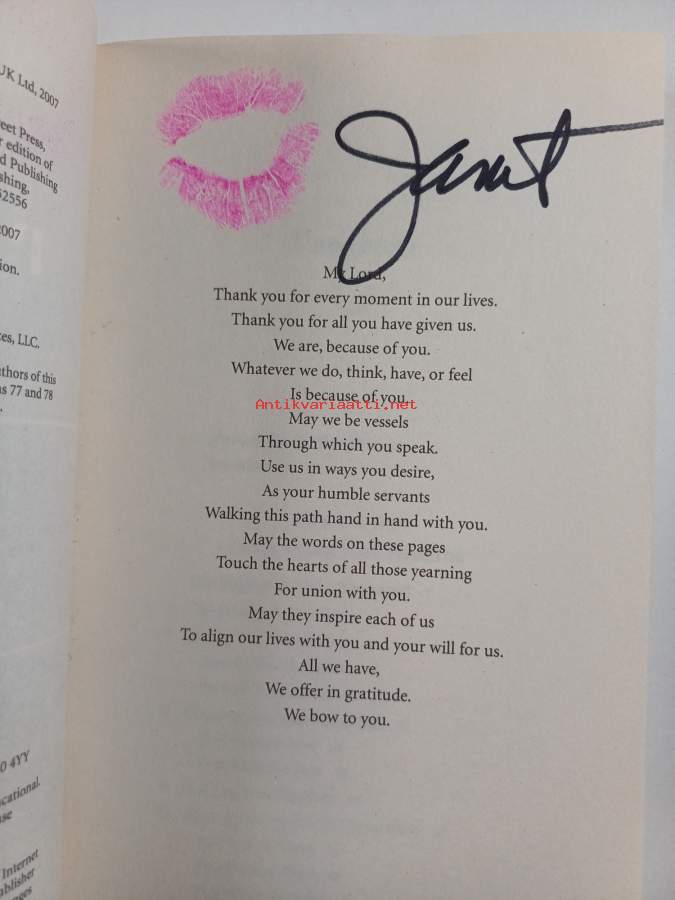 UK Ltd, 2007
eet Press,
r edition of
d Publishing
shing,
52556
2007
ion.
es, LLC.
thors of this
s 77 and 78
0 4YY
cational.
se
Internet
ublisher
nges
Janet
My Lord,
Thank you for every moment in our lives.
Thank you for all you have given us.
We are, because of you.
Whatever we do, think, have, or feel
Is because of you.
Antikvariaatti.net
May we be vessels
Through which you speak.
Use us in ways you desire,
As your humble servants
Walking this path hand in hand with you.
May the words on these pages
Touch the hearts of all those yearning
For union with you.
May they inspire each of us
To align our lives with you and your will for us.
All we have,
We offer in gratitude.
We bow to you.